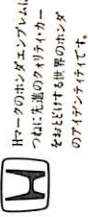 Hマークのホンダエンブレムは
つねに先進のクォリティ・カー
をおとどけする世界のホンダ
のアイデンティティです。